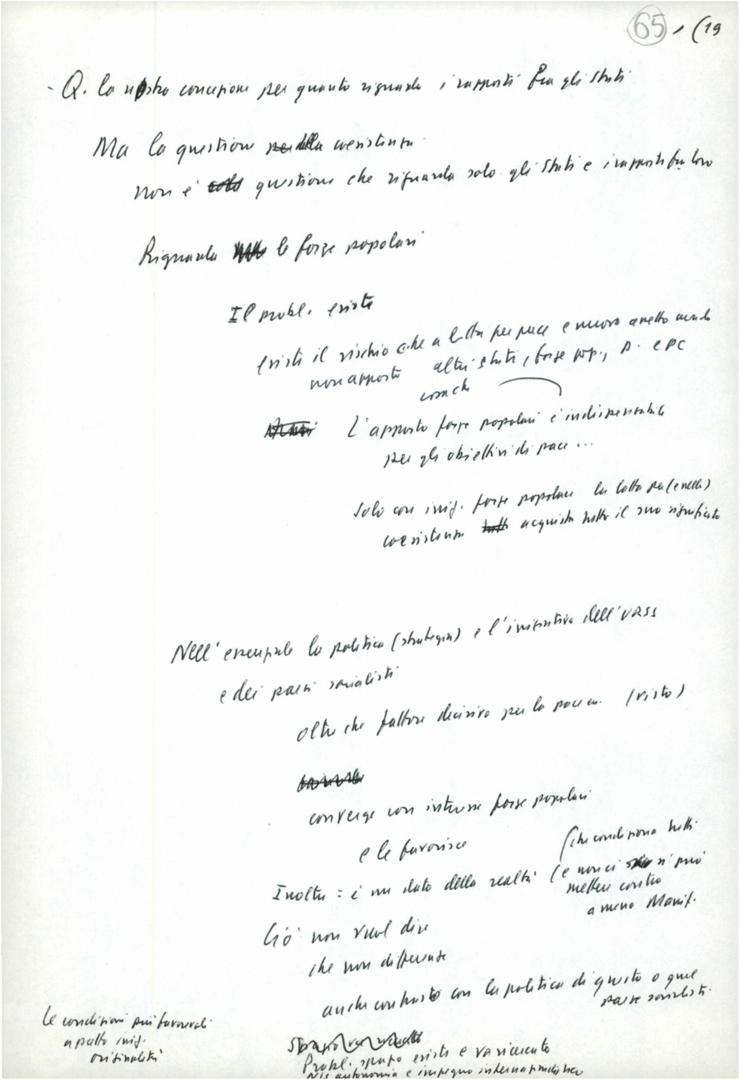 65 (19
- Q. la nostra concezione per quanto riguarda i rapporti fra gli stati
Ma la questione della coesistenza
non è questione che riguarda solo gli stati e i rapporti fra loro
Riguarda le forze popolari
Il probl. esiste
Esiste il rischio che a lotta per pace e nuovo assetto mondo
non apporto altri stati, forze pop., p. e PC
L'apporto forze popolari è indispensabile
per gli obiettivi di pace ...
Solo con iniz. forze popolari la lotta per (e nella)
coesistenza acquista tutto il suo significato
Nell'essenziale la politica (strategia) e l'iniziativa dell'URSS
e dei paesi socialisti
oltre che fattore decisivo per la pace (visto)
converge con interesse forze popolari
e le favorisce
Inoltre = è un dato della realtà (che condiziona tutti
(e non ci si può
mettere contro
a meno Manif.
Ciò non vuol dire
che non differenze
anche contrasto con la politica di questo o quel
paese socialista.
Le condizioni più favorevoli
a patto iniz.
originalità
Probl. spazio esiste e va ricercato
autonomia e impegno internazionalista